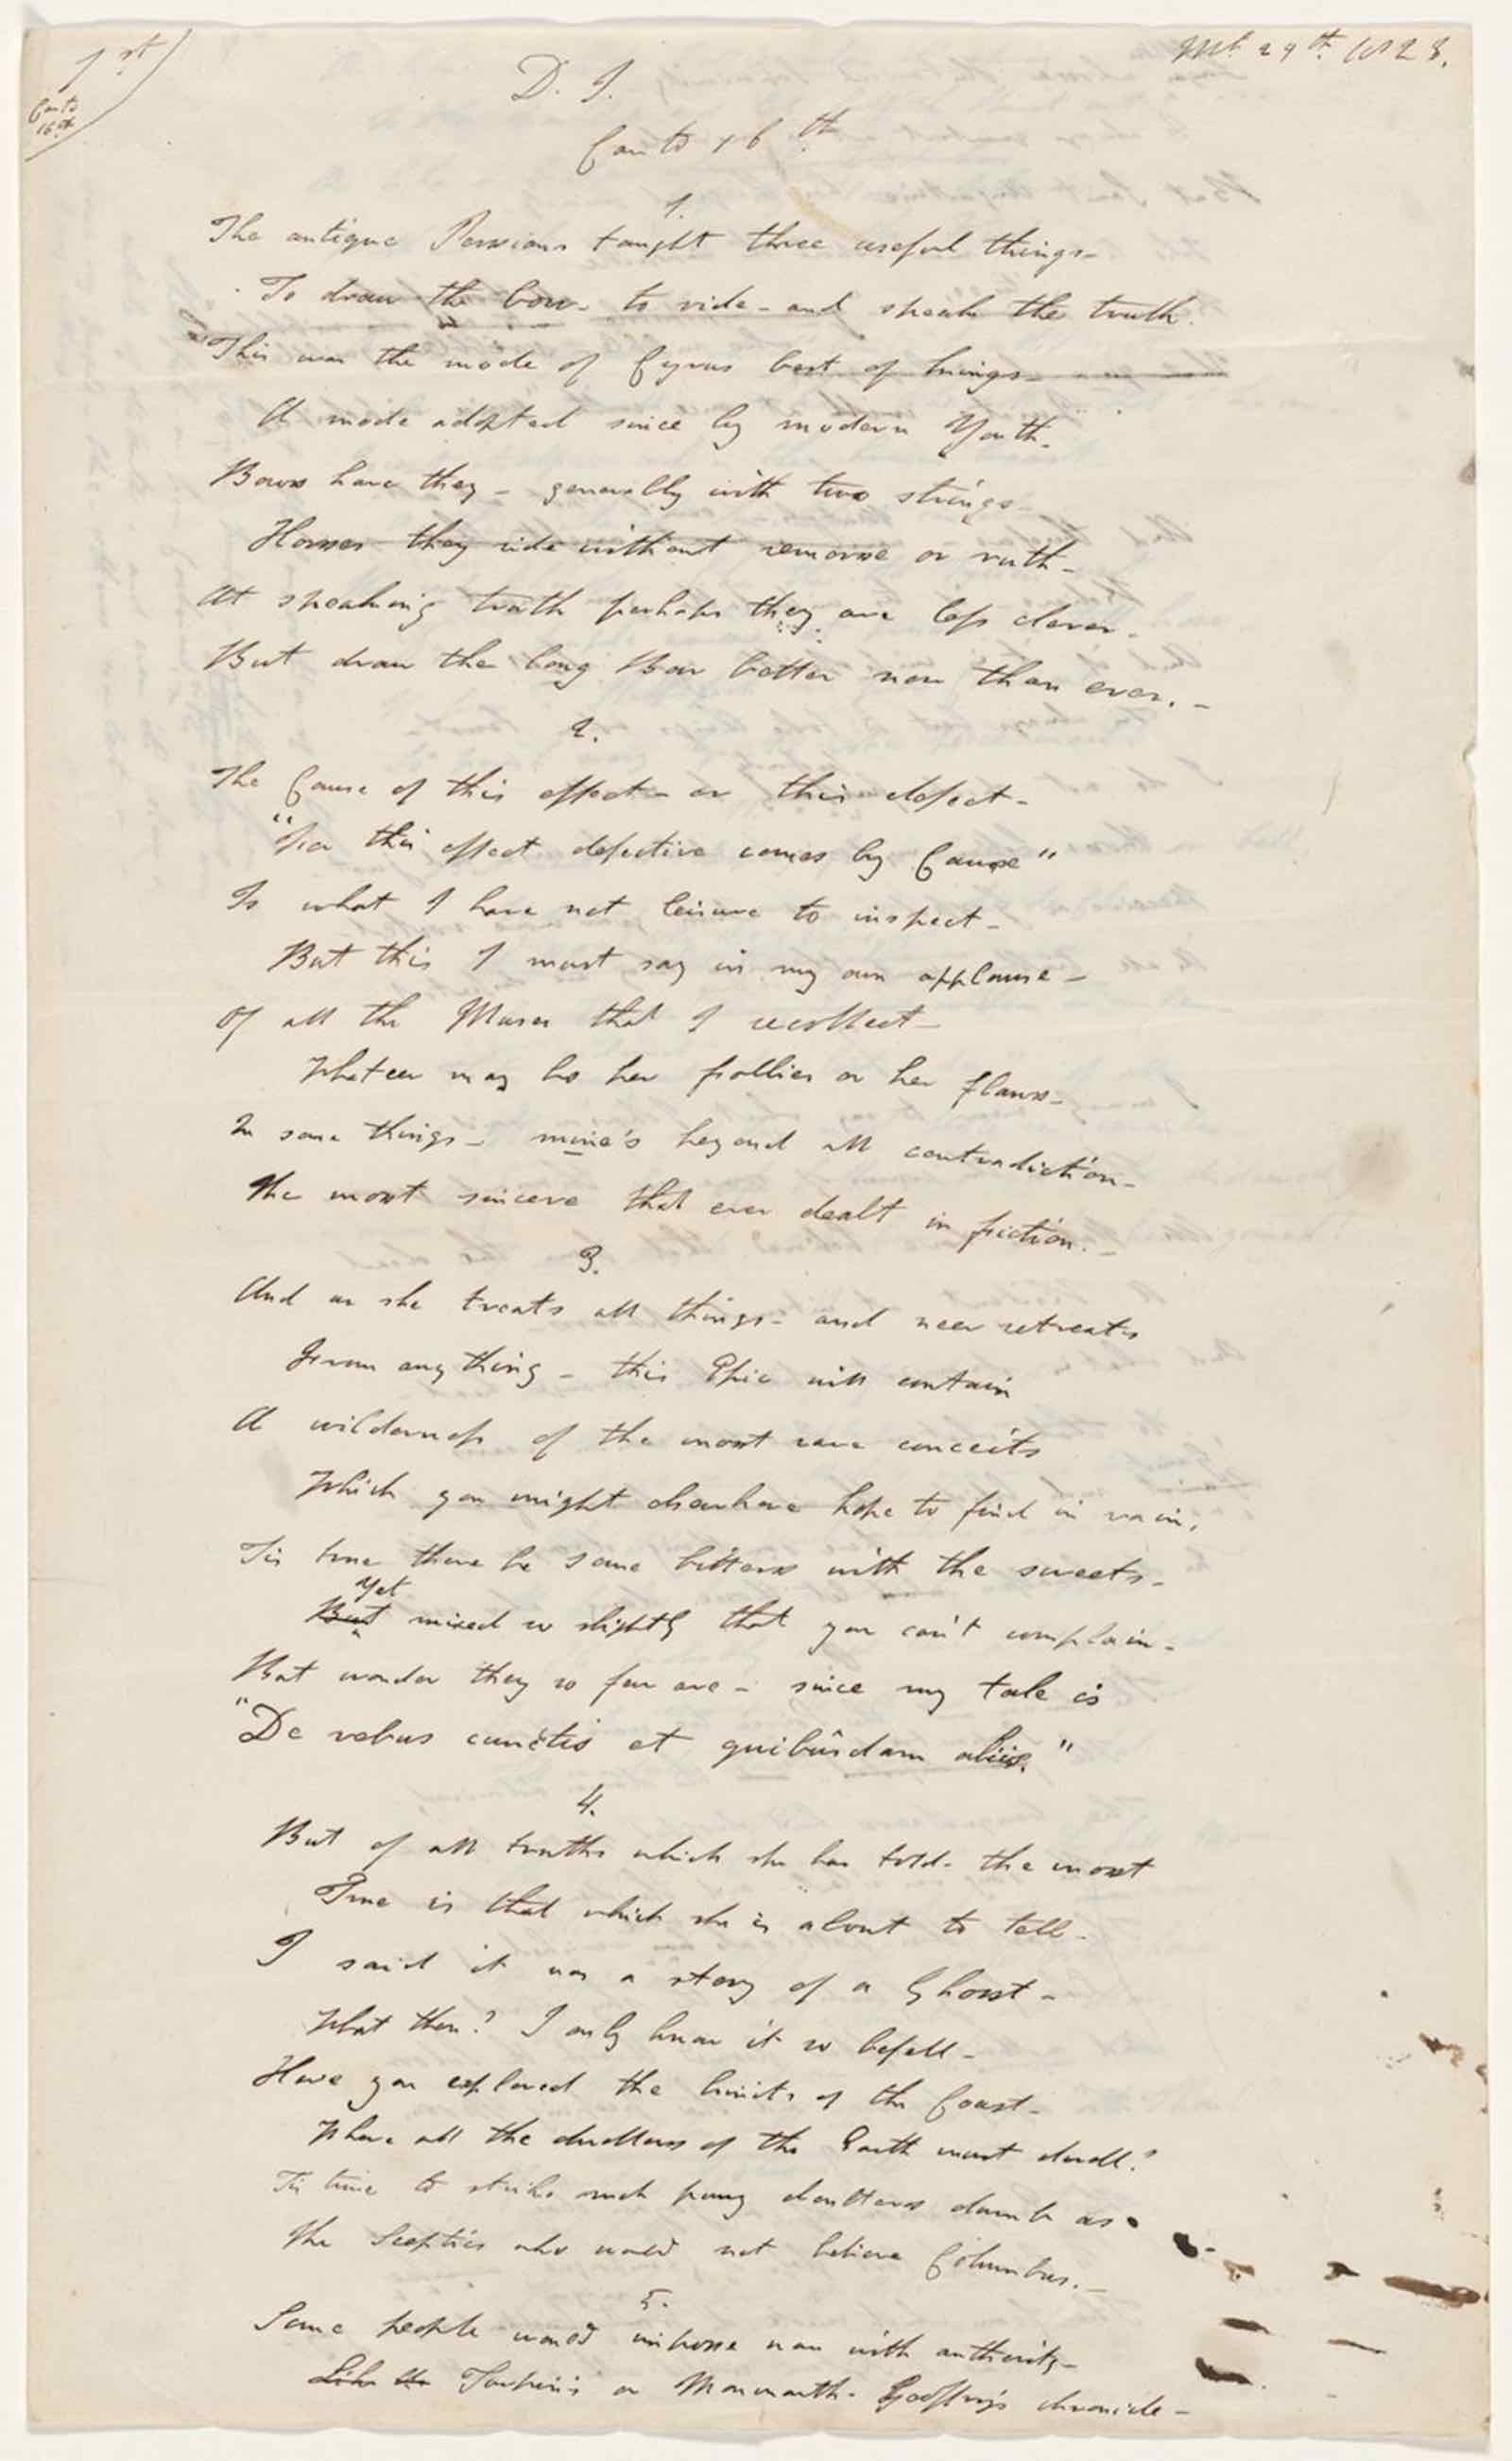 1st
Canto
16th
Mh. 29th. 1823.
D. J.
Canto 16th
1.
The antique Persians taught three useful things-
To draw the bow- to ride- and speak the truth.
This was the mode of Cyrus best of kings-
A mode adopted since by modern Youth.
Bows have they - generally with two strings-
Horses they ride without remorse or ruth-
At speaking truth perhaps they are less clever-
But draw the long Bow better now than ever. -
2.
The Cause of this effect- or this defect-
"For this effect defective comes by Cause"
Is what I have not leisure to inspect-
But this I must say in my own applause-
Of all the Muses that I recollect-
Whateer may be her follies or her flaws-
In some things- mine's beyond all contradiction-
The most sincere that ever dealt in fiction. -
3.
And as she treats all things- and neer retreats
From any thing - this Epic will contain
A wilderness of the most rare conceits
Which you might elsewhere hope to find in vain.
Tis true there be some bitters with the sweets-
Yet
But mixed so slightly that you can't complain-
But wonder they so few are - since my tale is
"De rebus cunctis et quibûsdam aliis."
4.
But of all truths which she has told- the most
True is that which she is about to tell-
I said it was a story of a Ghost-
What then? I only know it so befell-
Have you explored the limits of the Coast-
Where all the dwellers of the Earth must dwell?
Tis time to strike such puny doubters dumb as
The Sceptics who would not believe Columbus. -
5.
Some people would impose now with authority-
Like the Turpin's or Monmouth- Geoffry's chronicle-